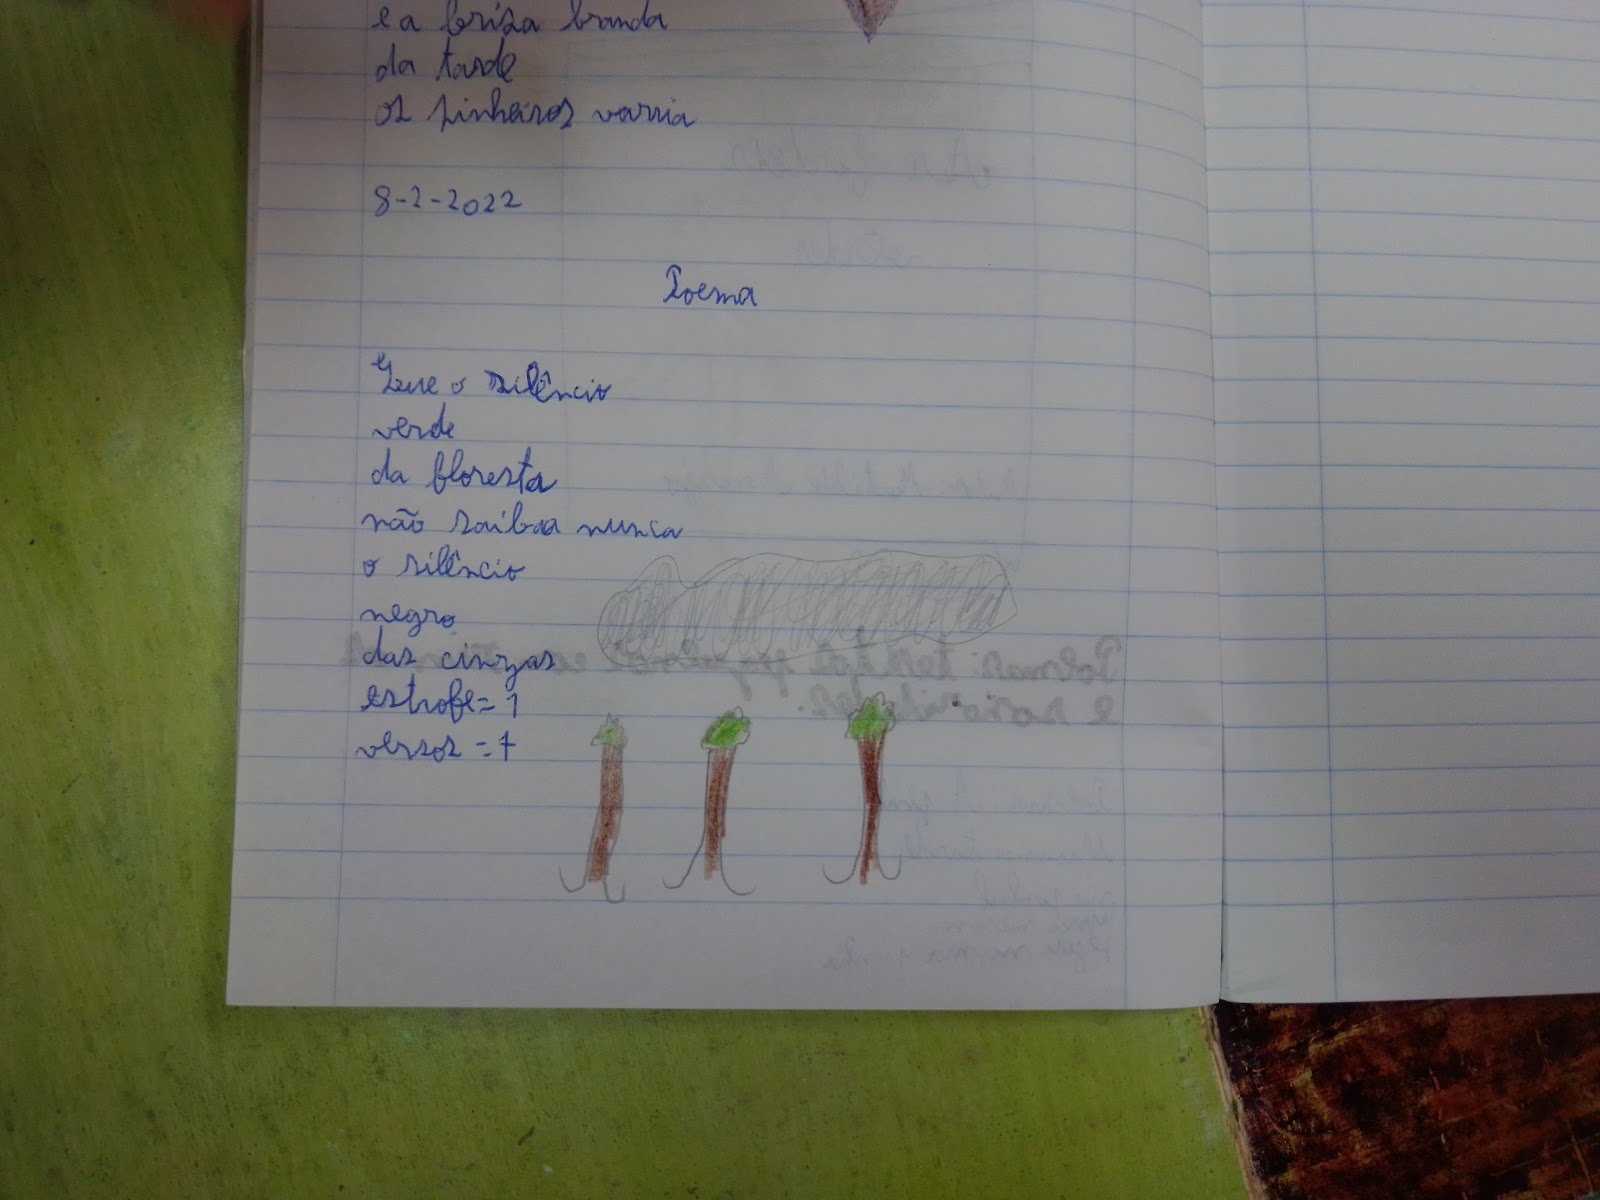 e a briza branda
da tarde
os pinheiros varria
8-2-2022
Poema
Que o silêncio
verde
da floresta
não saibaa nunca
o silêncio
negro
das cinzas
estrofe=1
versos =7